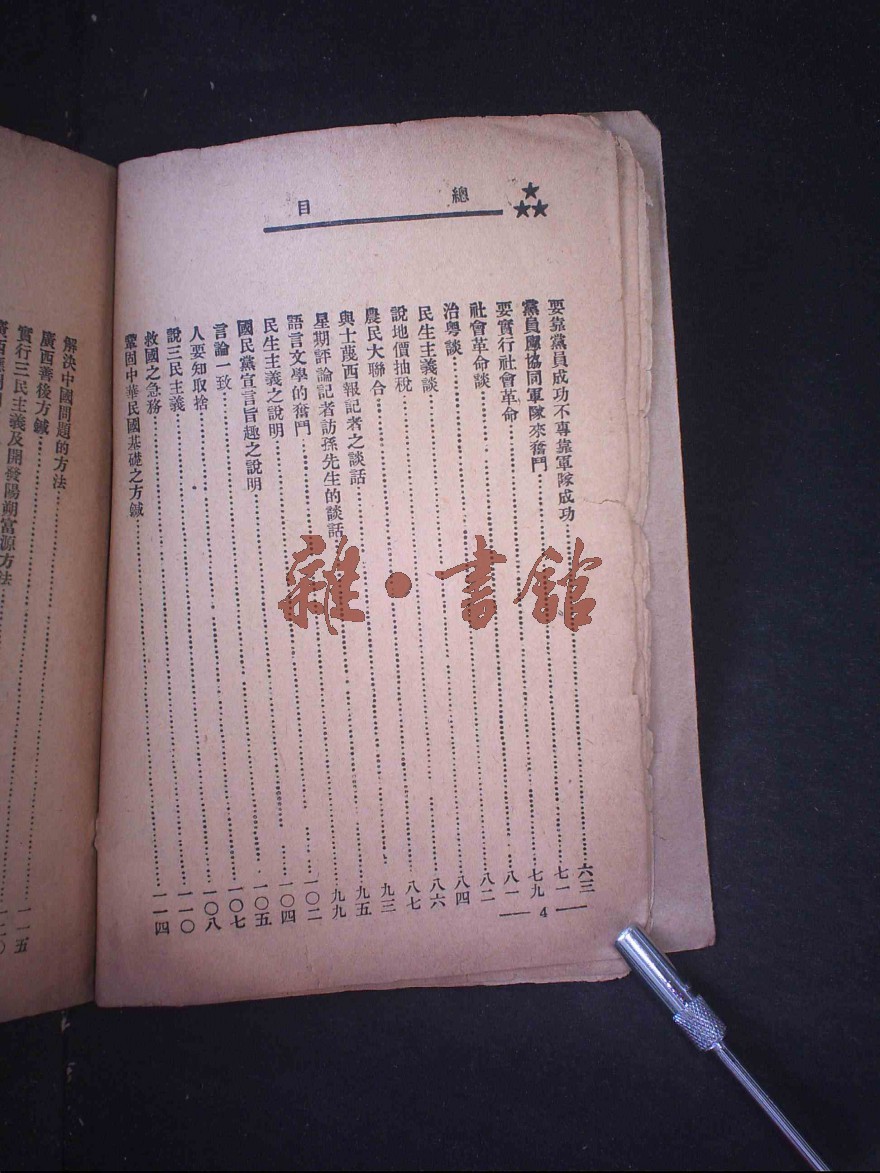 總目
要靠黨員成功不專靠軍隊成功……六三
黨員應協同軍隊來奮鬥……七一
要實行社會革命……七九
社會革命談……八一
治粵談……八二
民生主義談……八四
說地價抽稅……八六
農民大聯合……八七
與士蔑西報記者之談話……九三
星期評論記者訪孫先生的談話……九五
語言文學的奮鬥……九九
民生主義之說明……一〇二
國民黨宣言旨趣之說明……一〇四
言論一致……一〇五
人要知取捨……一〇七
說三民主義……一〇八
救國之急務……一一〇
鞏固中華民國基礎之方鍼……一一四
4
解決中國問題的方法……一一五
廣西善後方鍼……一二〇
實行三民主義及開發陽朔富源方法
雜·書館